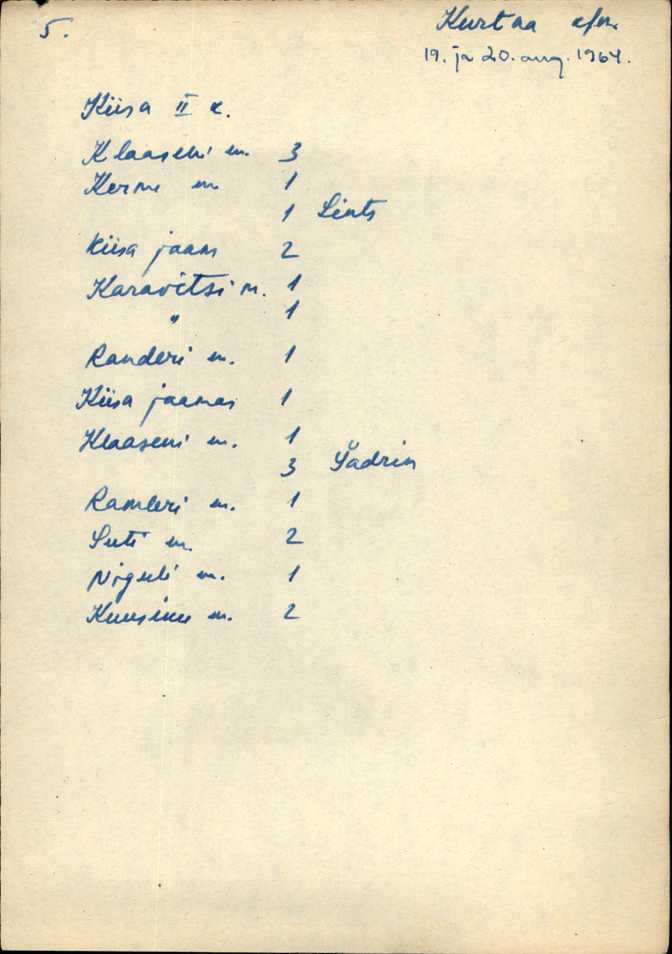 5.
Kurtna
19. ja 20. aug. 1964.
Kiisa II k.
Klaaseni m. 3
Kerme m 1
1 Lints
Kiisa jaam 2
Karavitsi m. 1
" 1
Randeri m. 1
Kiisa jaamas 1
Klaaseni m. 1
3 Šadrin
m. 1
m. 2
Niguli m. 1
Kuusiku m. 2